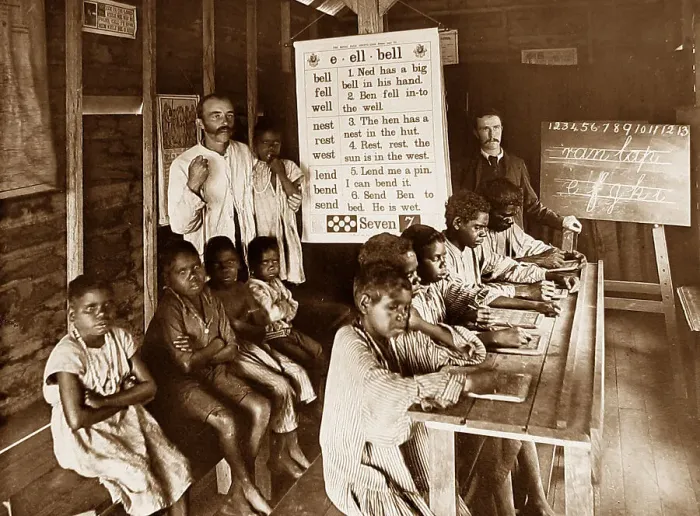 e · ell · bell
bell 1. Ned has a big
fell bell in his hand.
well 2. Ben fell in-to
the well.
nest 3. The hen has a
rest nest in the hut.
west 4. Rest, rest, the
sun is in the west.
lend 5. Lend me a pin.
bend I can bend it.
send 6. Send Ben to
bed. He is wet.
Seven 7
1 2 3 4 5 6 7 8 9 10 11 12 13
ran lap
e f g h i